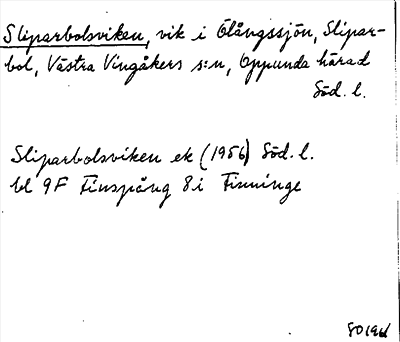 Sliparbolsviken, vik i Ölångssjön, Slipar-
bol, Västra Vingåkers s:n, Oppunda härad
Söd. l.
Sliparbolsviken ek (1956) Söd. l.
bl 9F Finspång 8i Finninge